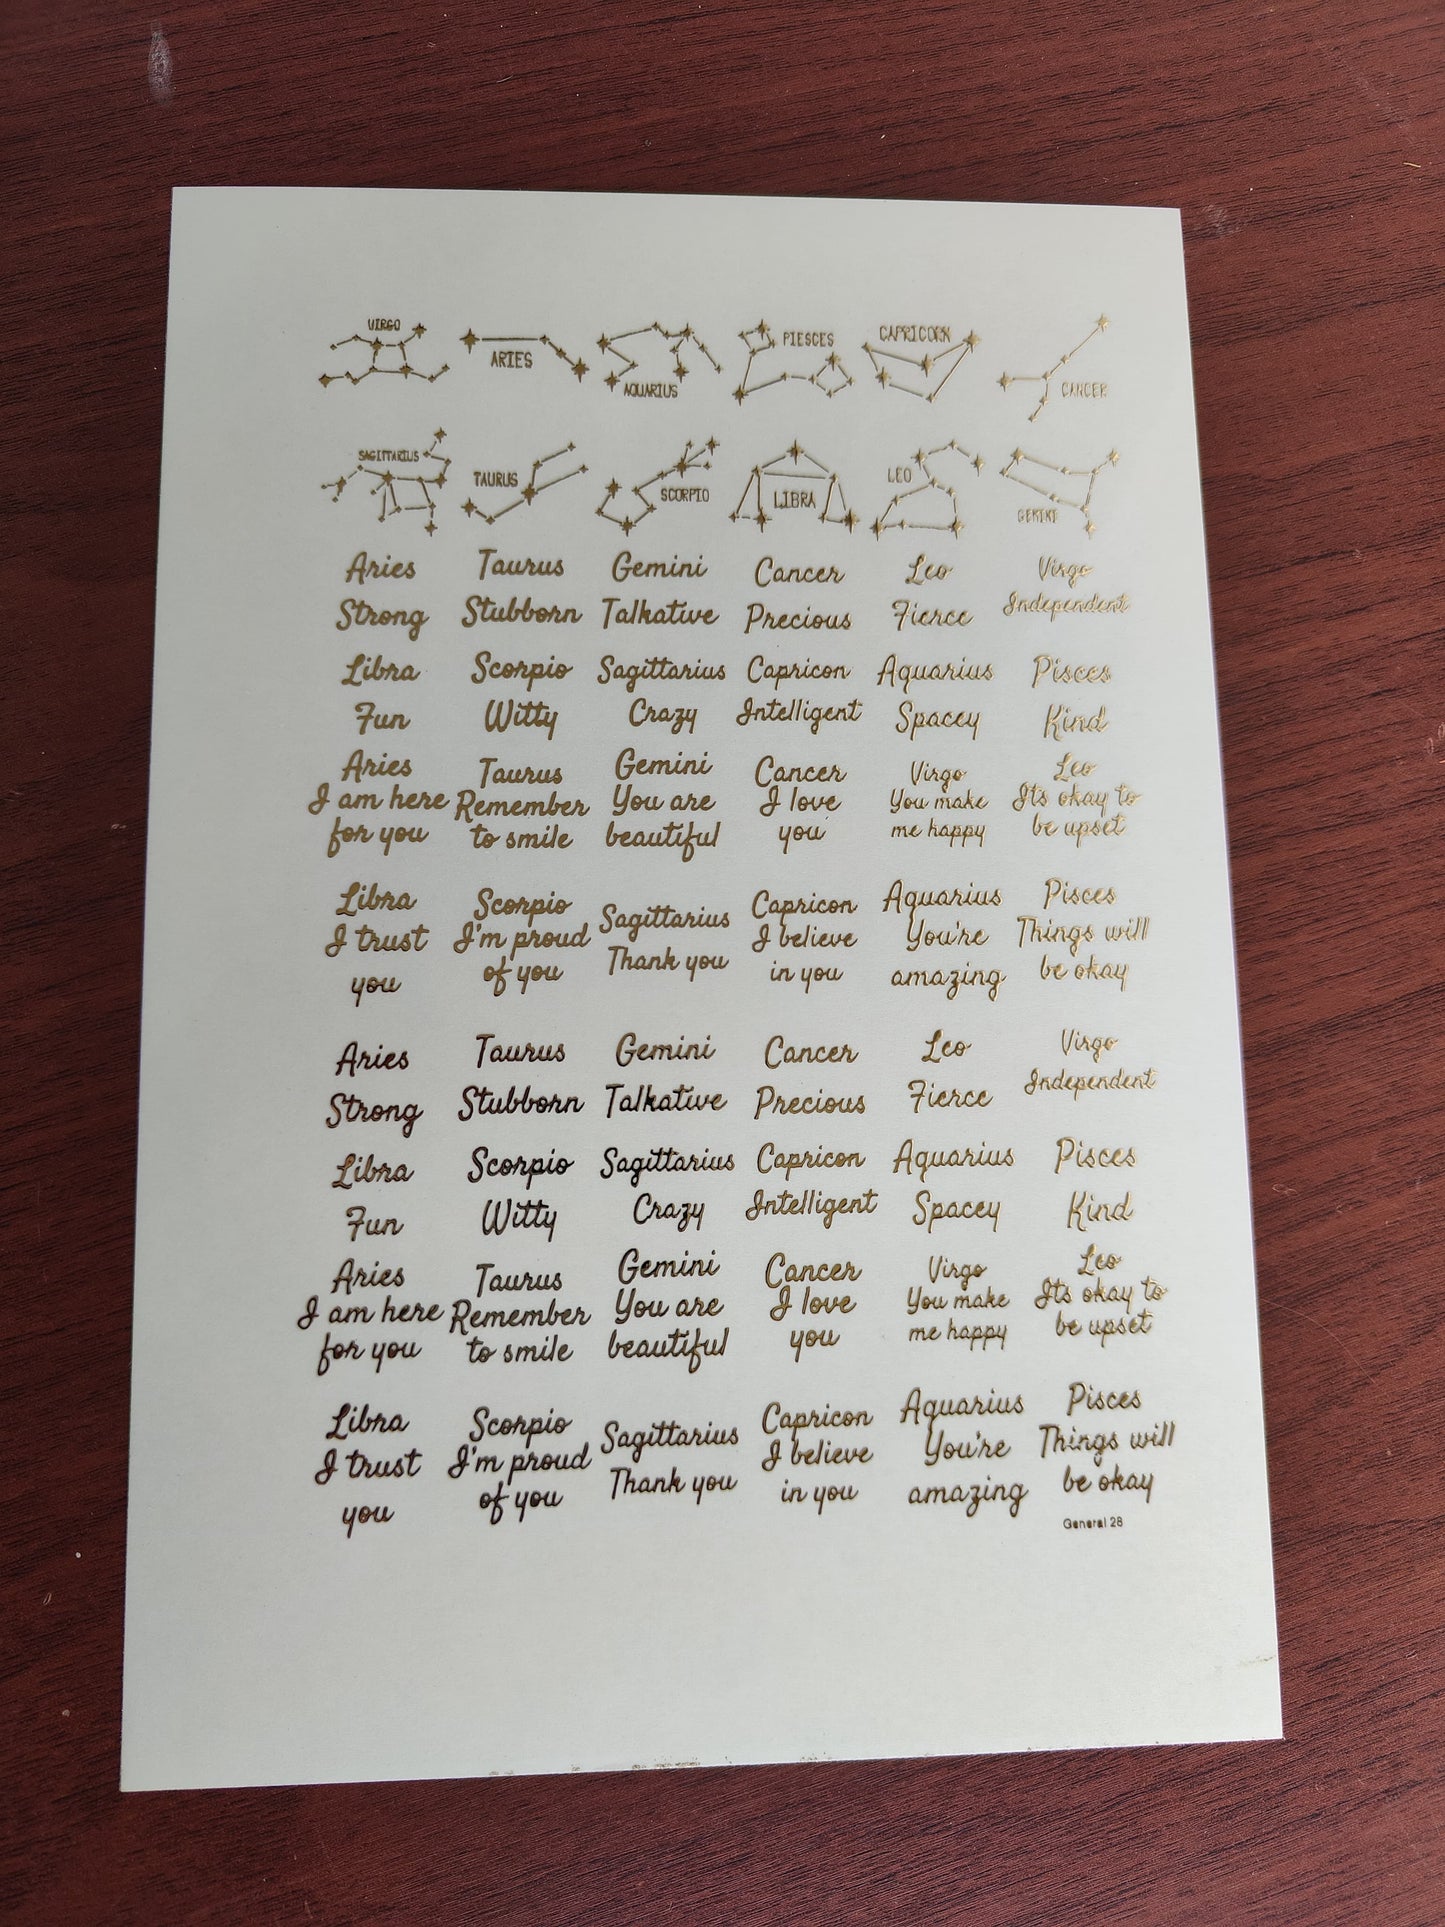 VIRGO ARIES AQUARIUS PIESCES CAPRICORN CANCER
SAGITTARIUS TAURUS SCORPIO LIBRA LEO GEMINI
Aries Taurus Gemini Cancer Leo Virgo
Strong Stubborn Talkative Precious Fierce Independent
Libra Scorpio Sagittarius Capricon Aquarius Pisces
Fun Witty Crazy Intelligent Spacey Kind
Aries Taurus Gemini Cancer Virgo Leo
I am here Remember You are I love You make Its okay to
for you to smile beautiful you me happy be upset
Libra Scorpio Sagittarius Capricon Aquarius Pisces
I trust I'm proud Thank you I believe You're Things will
you of you in you amazing be okay
Aries Taurus Gemini Cancer Leo Virgo
Strong Stubborn Talkative Precious Fierce Independent
Libra Scorpio Sagittarius Capricon Aquarius Pisces
Fun Witty Crazy Intelligent Spacey Kind
Aries Taurus Gemini Cancer Virgo Leo
I am here Remember You are I love You make Its okay to
for you to smile beautiful you me happy be upset
Libra Scorpio Sagittarius Capricon Aquarius Pisces
I trust I'm proud Thank you I believe You're Things will
you of you in you amazing be okay
General 28